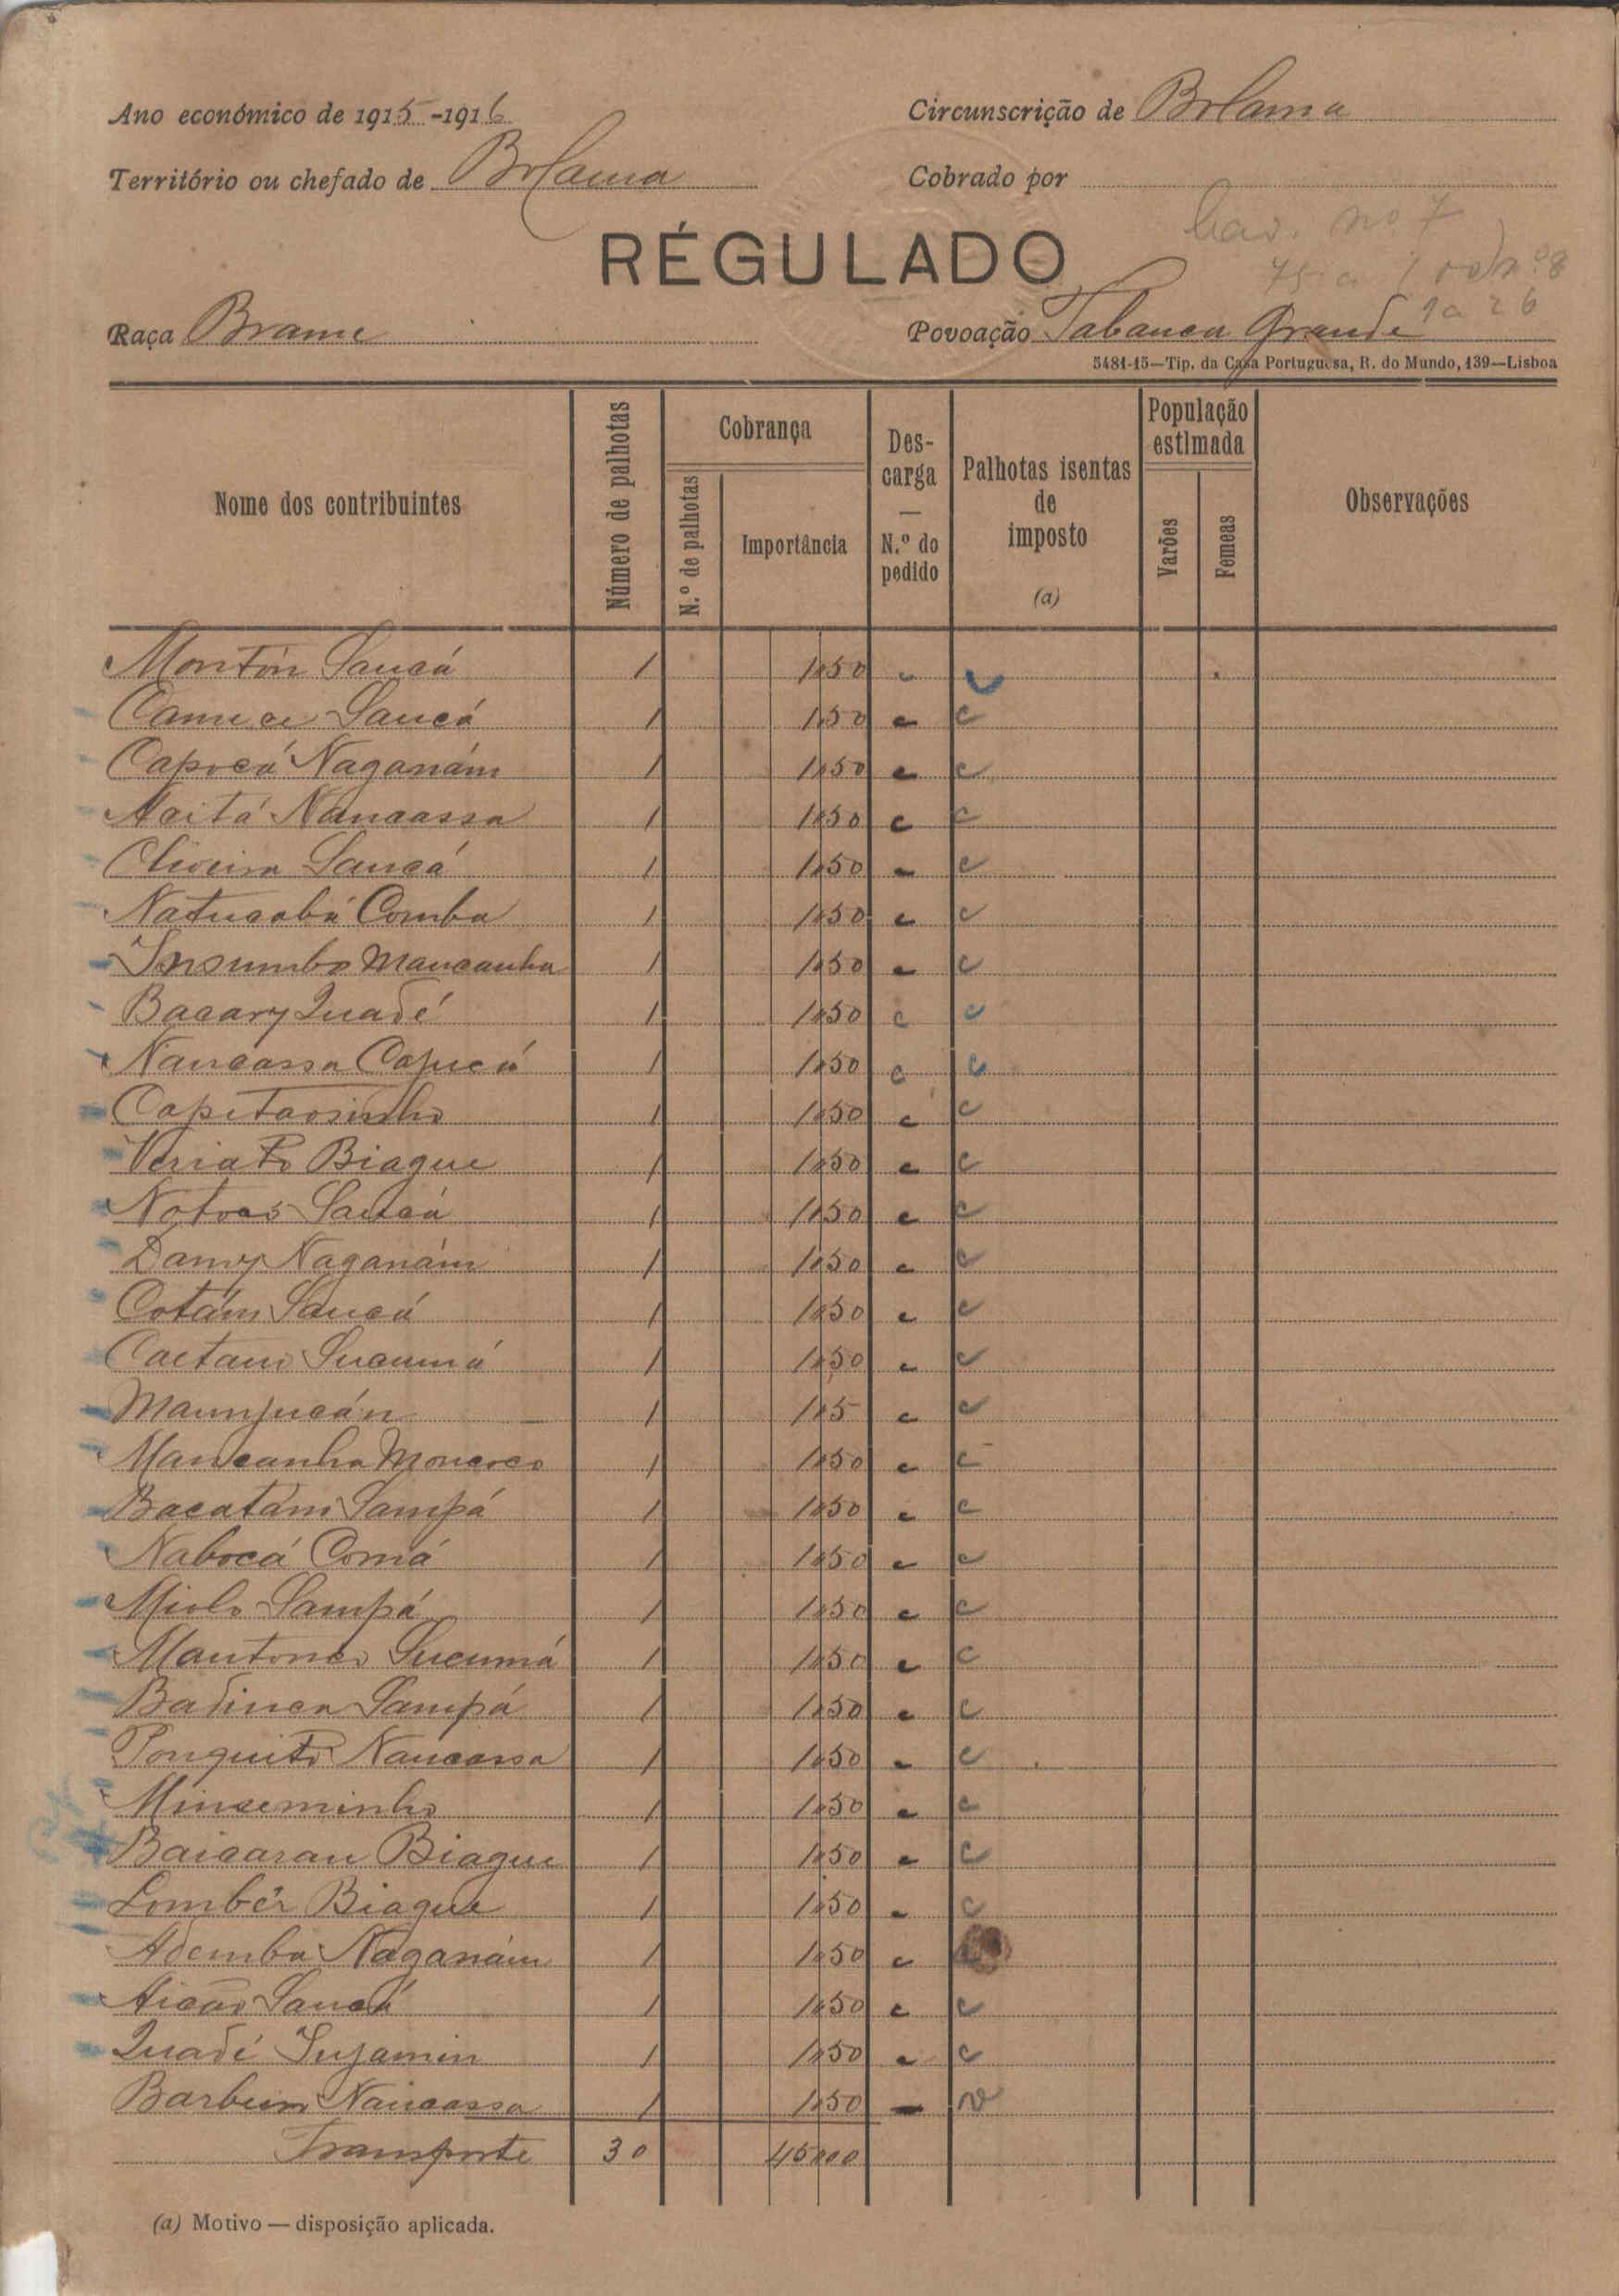 Ano económico de 1915-1916
Circunscrição de Bolama
Território ou chefado de Bolama
Cobrado por
Cad. nº 7
75 a 100 nº 8
1 a 26
RÉGULADO
Raça Brame
Povoação Tabanca Grande
5481-15—Tip. da Casa Portuguesa, R. do Mundo, 139—Lisboa
Nome dos contribuintes
Número de palhotas
Cobrança
N.º de palhotas
Importância
Des-
carga
—
N.º do
pedido
Palhotas isentas
de
imposto
(a)
População
estimada
Varões
Femeas
Observações
Montôn Sancá 1 1$50
Sancá 1 1$50 c c
Capocá Naganám 1 1$50 c c
Acitá Nancassa 1 1$50 c c
Oliveira Sancá 1 1$50 c c
Natucabú Comba 1 1$50 c c
Insumbo Mancanha 1 1$50 c c
Bacary Quadé 1 1$50 c c
Nancassa Capucú 1 1$50 c c
Capitaosinho 1 1$50 c c
Veriato Biague 1 1$50 c c
Sancá 1 1$50 c c
Damy Naganám 1 1$50 c c
Cotám Sancá 1 1$50 c c
Caetano Sucumá 1 1$50 c c
Maunjucán 1 1$5 c c
Mancanha Moncoco 1 1$50 c c
Bacatam Sampá 1 1$50 c c
Nabocá Comá 1 1$50 c c
Miolo Sampá 1 1$50 c c
Mantonco Sucumá 1 1$50 c c
Badinca Sampá 1 1$50 c c
Ponquito Nancassa 1 1$50 c c
Minseminho 1 1$50 c c
Baicaran Biague 1 1$50 c c
Lombér Biague 1 1$50 c c
Ademba Naganám 1 1$50 c
Aicao Sancá 1 1$50 c c
Quadé Injamin 1 1$50 c c
Nancassa 1 1$50
Transporte 30 45$00
(a) Motivo — disposição aplicada.